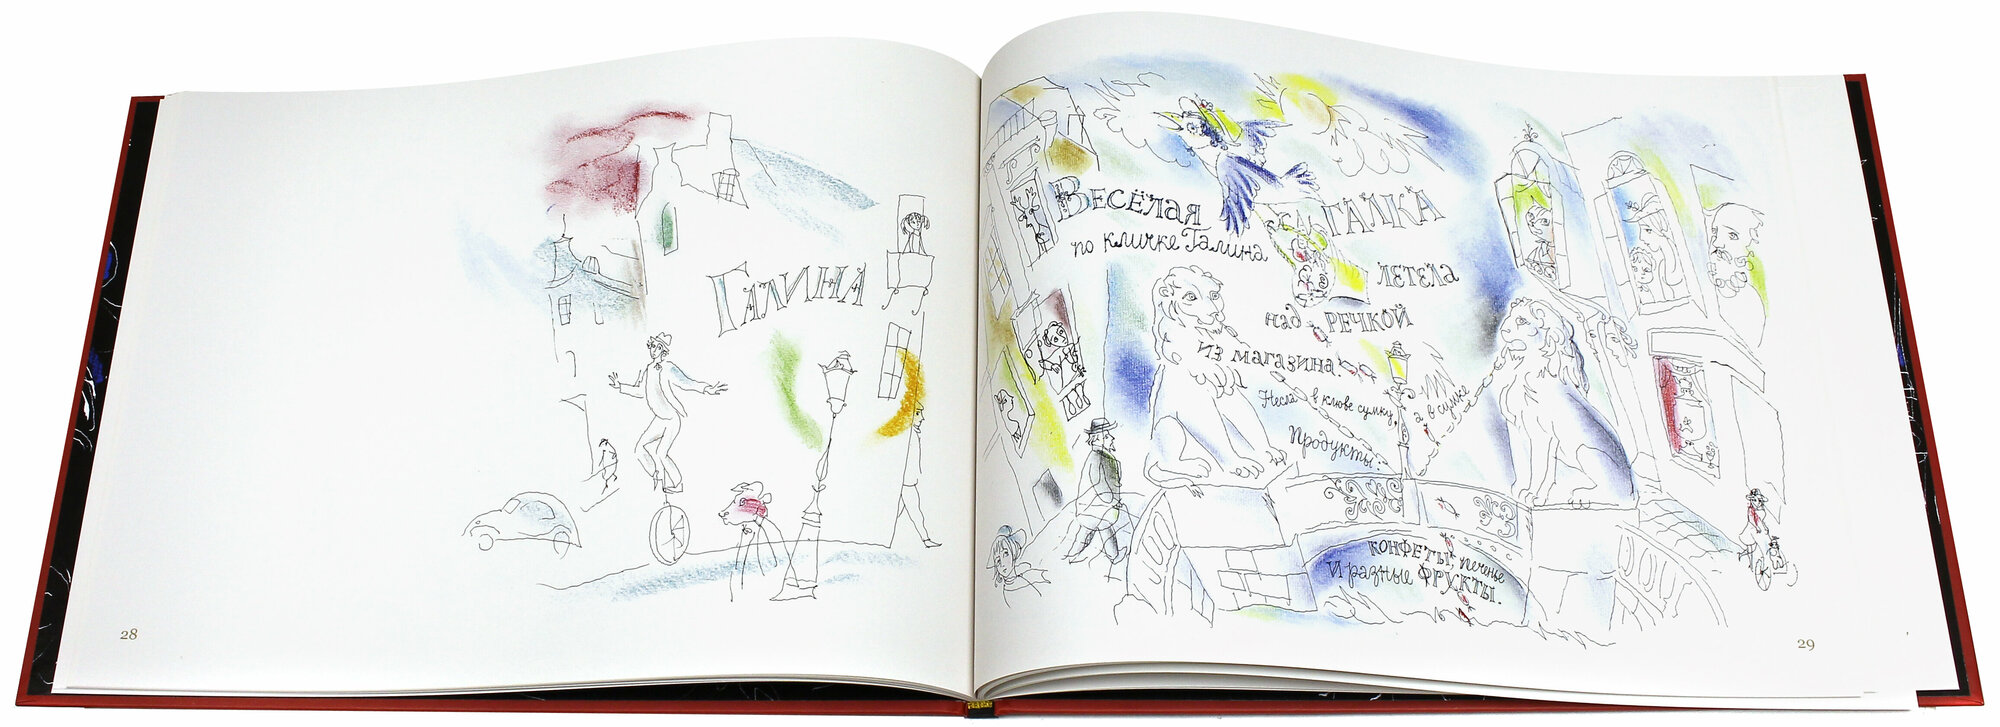 Галина
28
Весёлая галка
по кличке Галина
летела
над речкой
из магазина.
Несла в клюве сумку,
а в сумке
продукты:
конфеты, печенье
и разные фрукты.
29